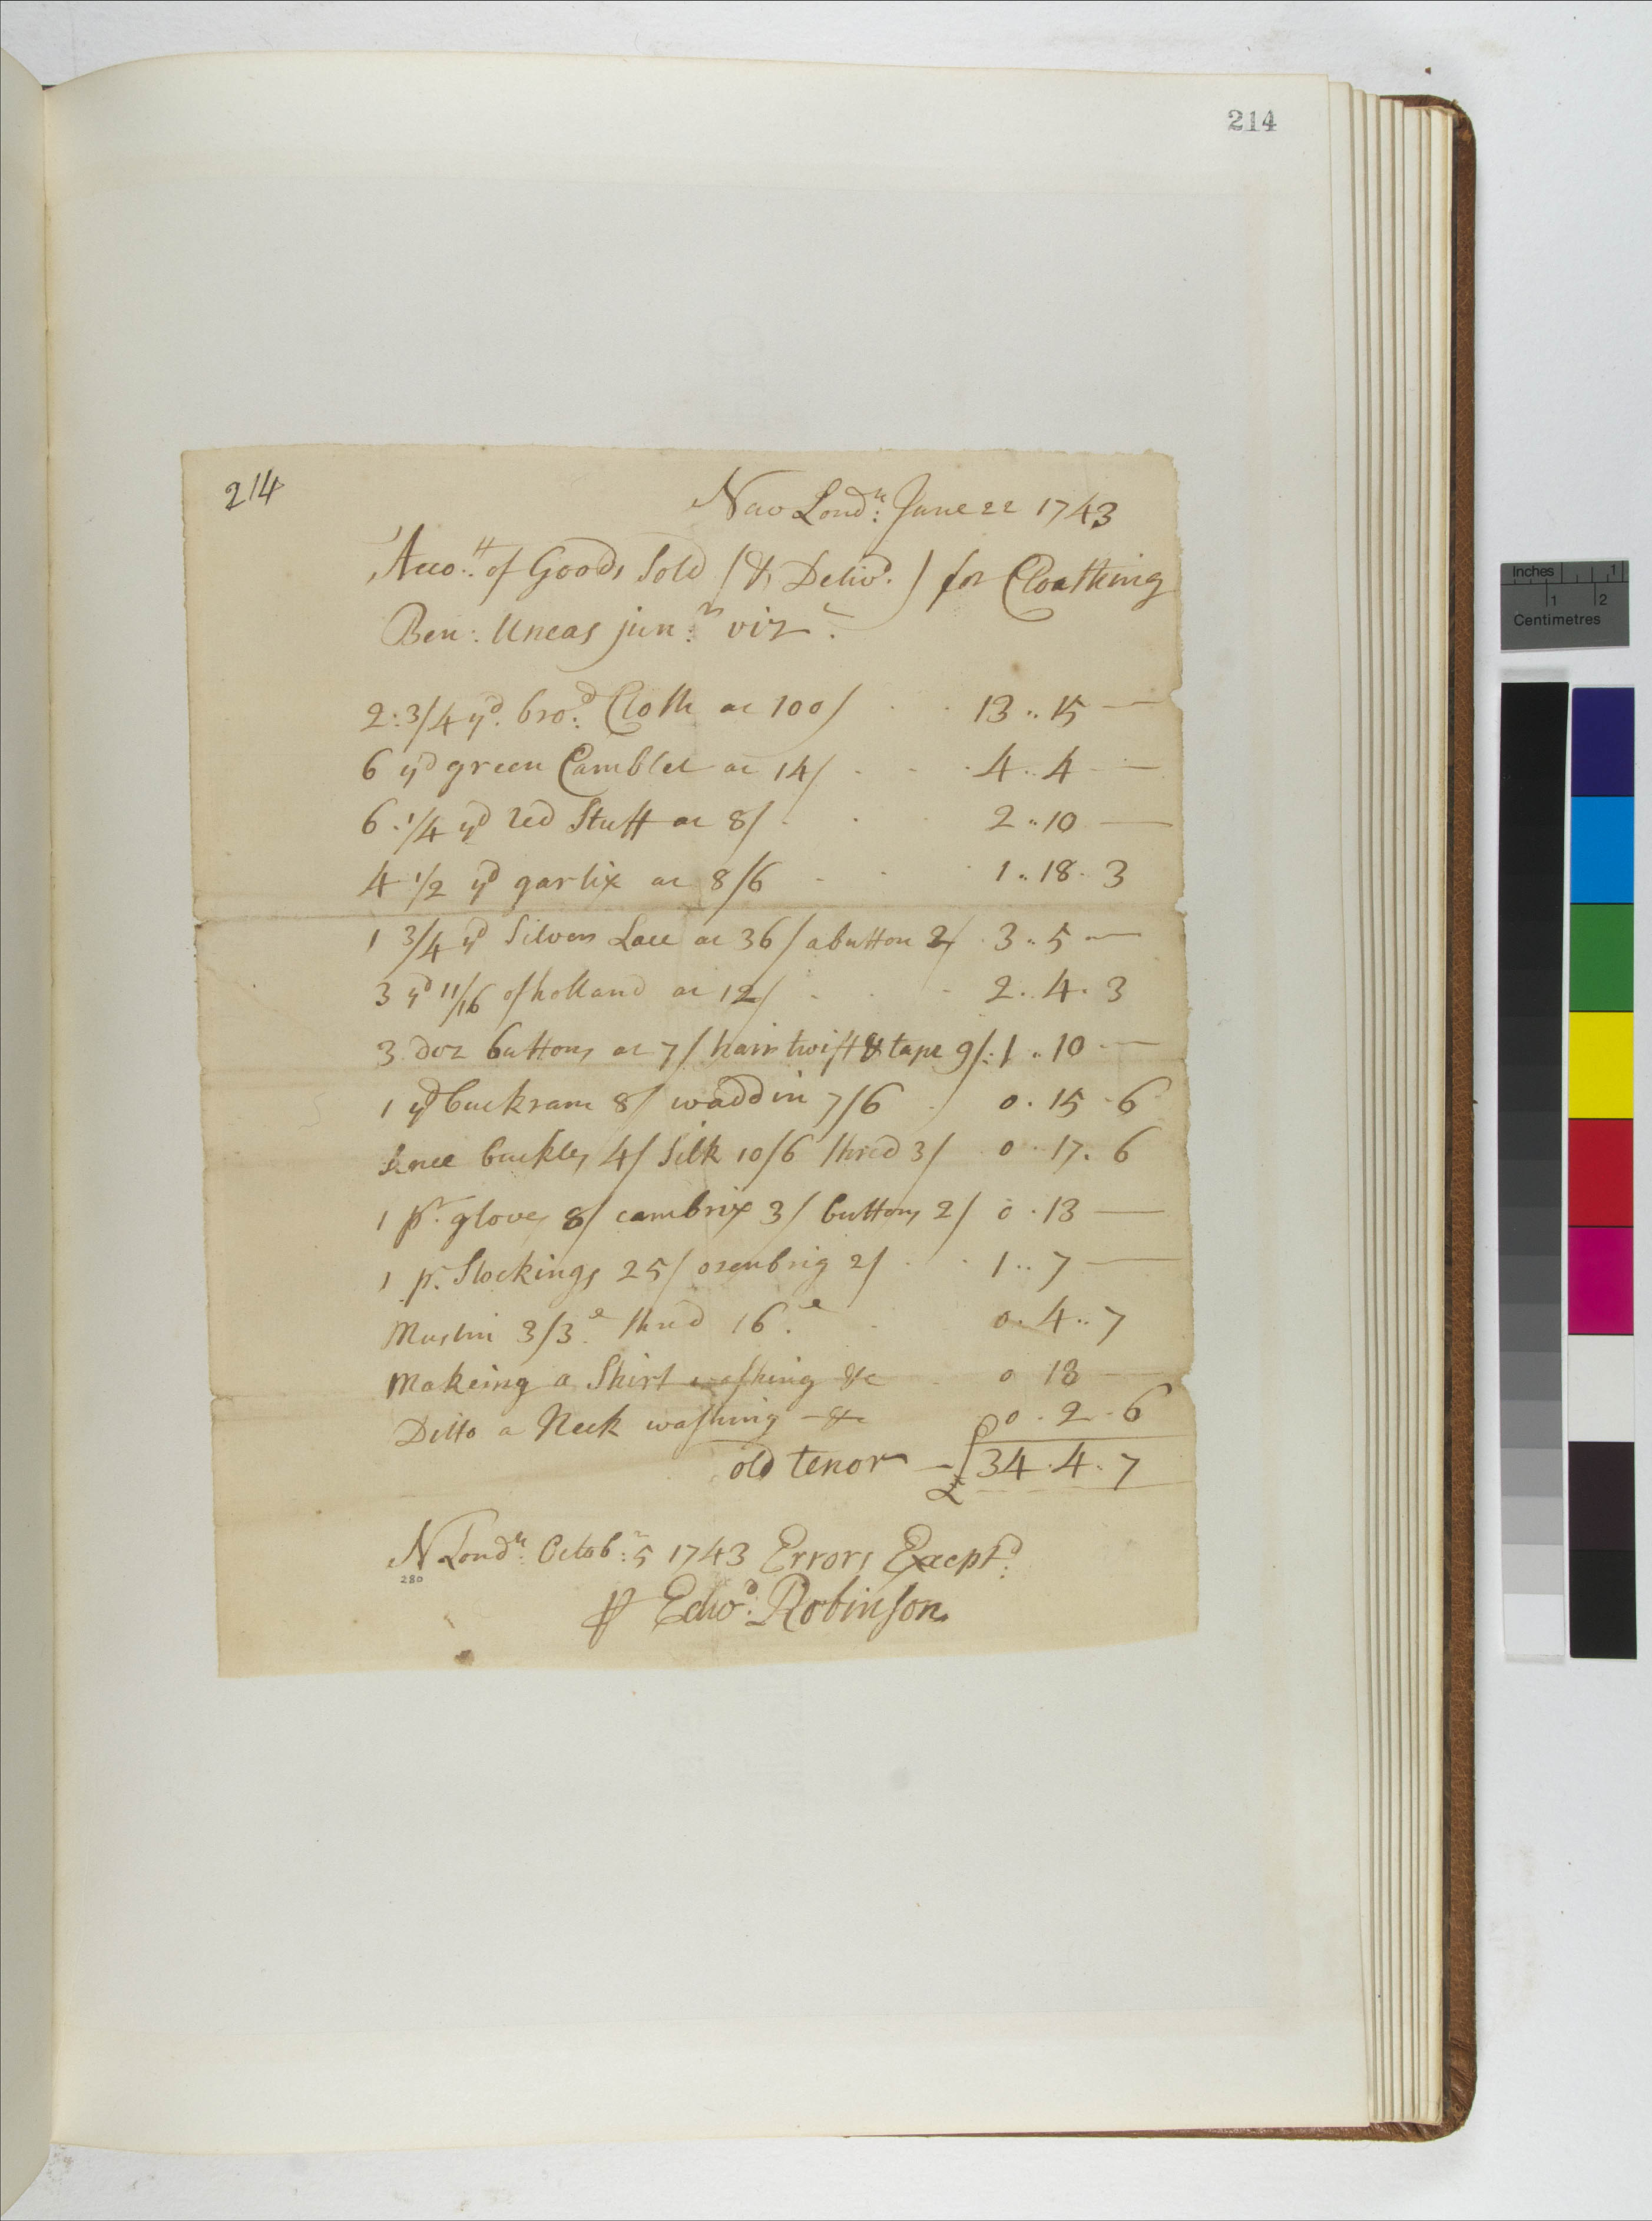 214
214
New Lond.n June 22 1743
Acco.tt of Goods Sold (& Deliv.d) for Cloathing
Ben: Uncas jun:r viz.t
2:3/4 yd. bro:d Cloth at 100/ 13..15 —
6 yd green Camblet at 14/ 4..4 —
6.1/4 yd red Stuff at 8/ 2..10 —
4 1/2 yd garlix at 8/6 1..18.3
1 3/4 yd Silver Lace at 36/ a button 2/ 3..5 —
3 yd 11/16 of holland at 12/ 2.4.3
3 doz buttons at 7/ hair twist & tape 9/: 1..10 —
1 yd buckram 8/ waddin 7/6 0.15.6
knee buckles 4/ Silk 10/6 thred 3/ 0.17.6
1 pr. gloves 8/ cambrix 3/ buttons 2/ 0.13 —
1 pr. Stockings 25/ ozenbrig 2/ 1..7 —
Muslin 3/3.d thred 16.d 0.4..7
Makeing a Shirt washing &c 0 18 —
Ditto a Neck washing & 0.2.6
old tenor — £ 34.4.7
N Lond.n Octob:r 5 1743 Errors Excepted
280
⅌ Edw.d Robinson
Inches 1
1 2
Centimetres